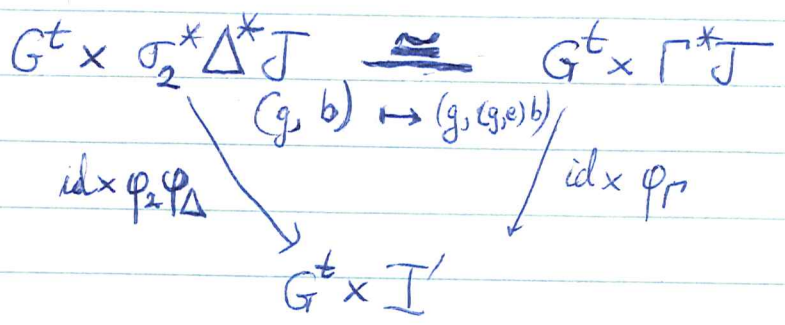 G^t × σ_2^*Δ^*J ≅ G^t × Γ^*J
(g, b) ↦ (g, (g,e)b)
id × φ_2φ_Δ id × φ_Γ
G^t × I'